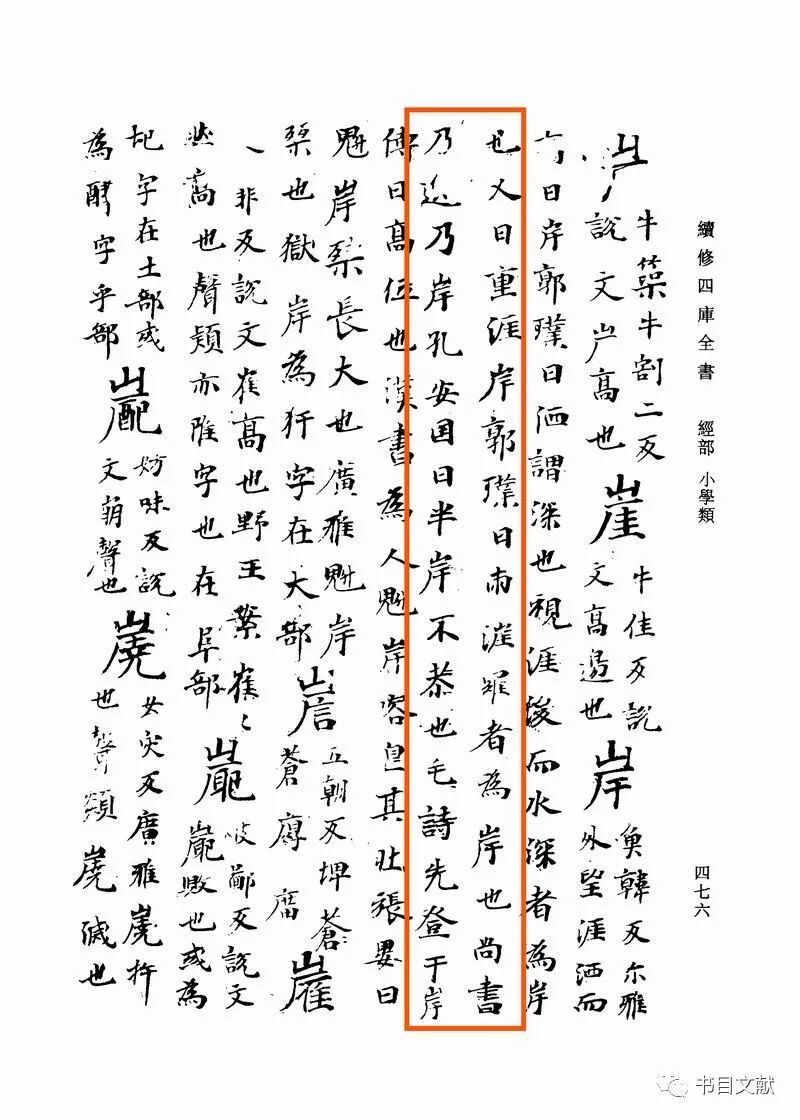 續修四庫全書 經部 小學類
四七六
屵
牛築牛割二反
說文屵高也
崖
牛佳反說
文高邊也
岸
魚韓反尔雅
外望涯洒而
曰岸郭璞曰洒謂深也視涯峻而水深者為岸
也又曰重涯岸郭璞曰兩涯雖者為岸也尚書
乃逸乃岸孔安国曰半岸不恭也毛詩先登于岸
傳曰高位也漢書為人魁岸容皃其壯張晏曰
魁岸桀長大也廣雅魁岸
桀也獄岸為犴字在犬部
五朝反埤蒼
蒼
非反說文崔高也野王案崔〻
高也聲類亦陮字也在阜部
鄙反說文
毀也或為
圮字在土部或
為酵字手部
妨味反說
文崩聲也
女交反廣雅
也聲類 滅也
书目文献